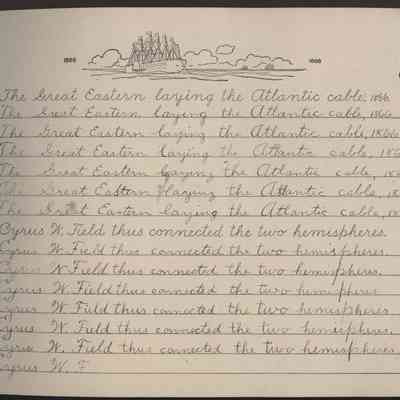 1866 1866
The Great Eastern laying the Atlantic cable, 1866
The Great Eastern laying the Atlantic cable, 1866
The Great Eastern laying the Atlantic cable, 1866
The Great Eastern laying the Atlantic cable, 186
The Great Eastern laying the Atlantic cable, 18
The Great Eastern playing the Atlantic cable, 1
The Great Eastern laying the Atlantic cable, 18
Cyrus W. Field thus connected the two hemispheres.
Cyrus W. Field thus connected the two hemispheres.
Cyrus W Field thus connected the two hemispheres.
Cyrus W. Field thus connected the two hemispheres
Cyrus W Field thus connected the two hemispheres.
Cyrus W. Field thus connected the two hemispheres.
Cyrus W. Field thus connected the two hemispheres.
Cyrus W. F